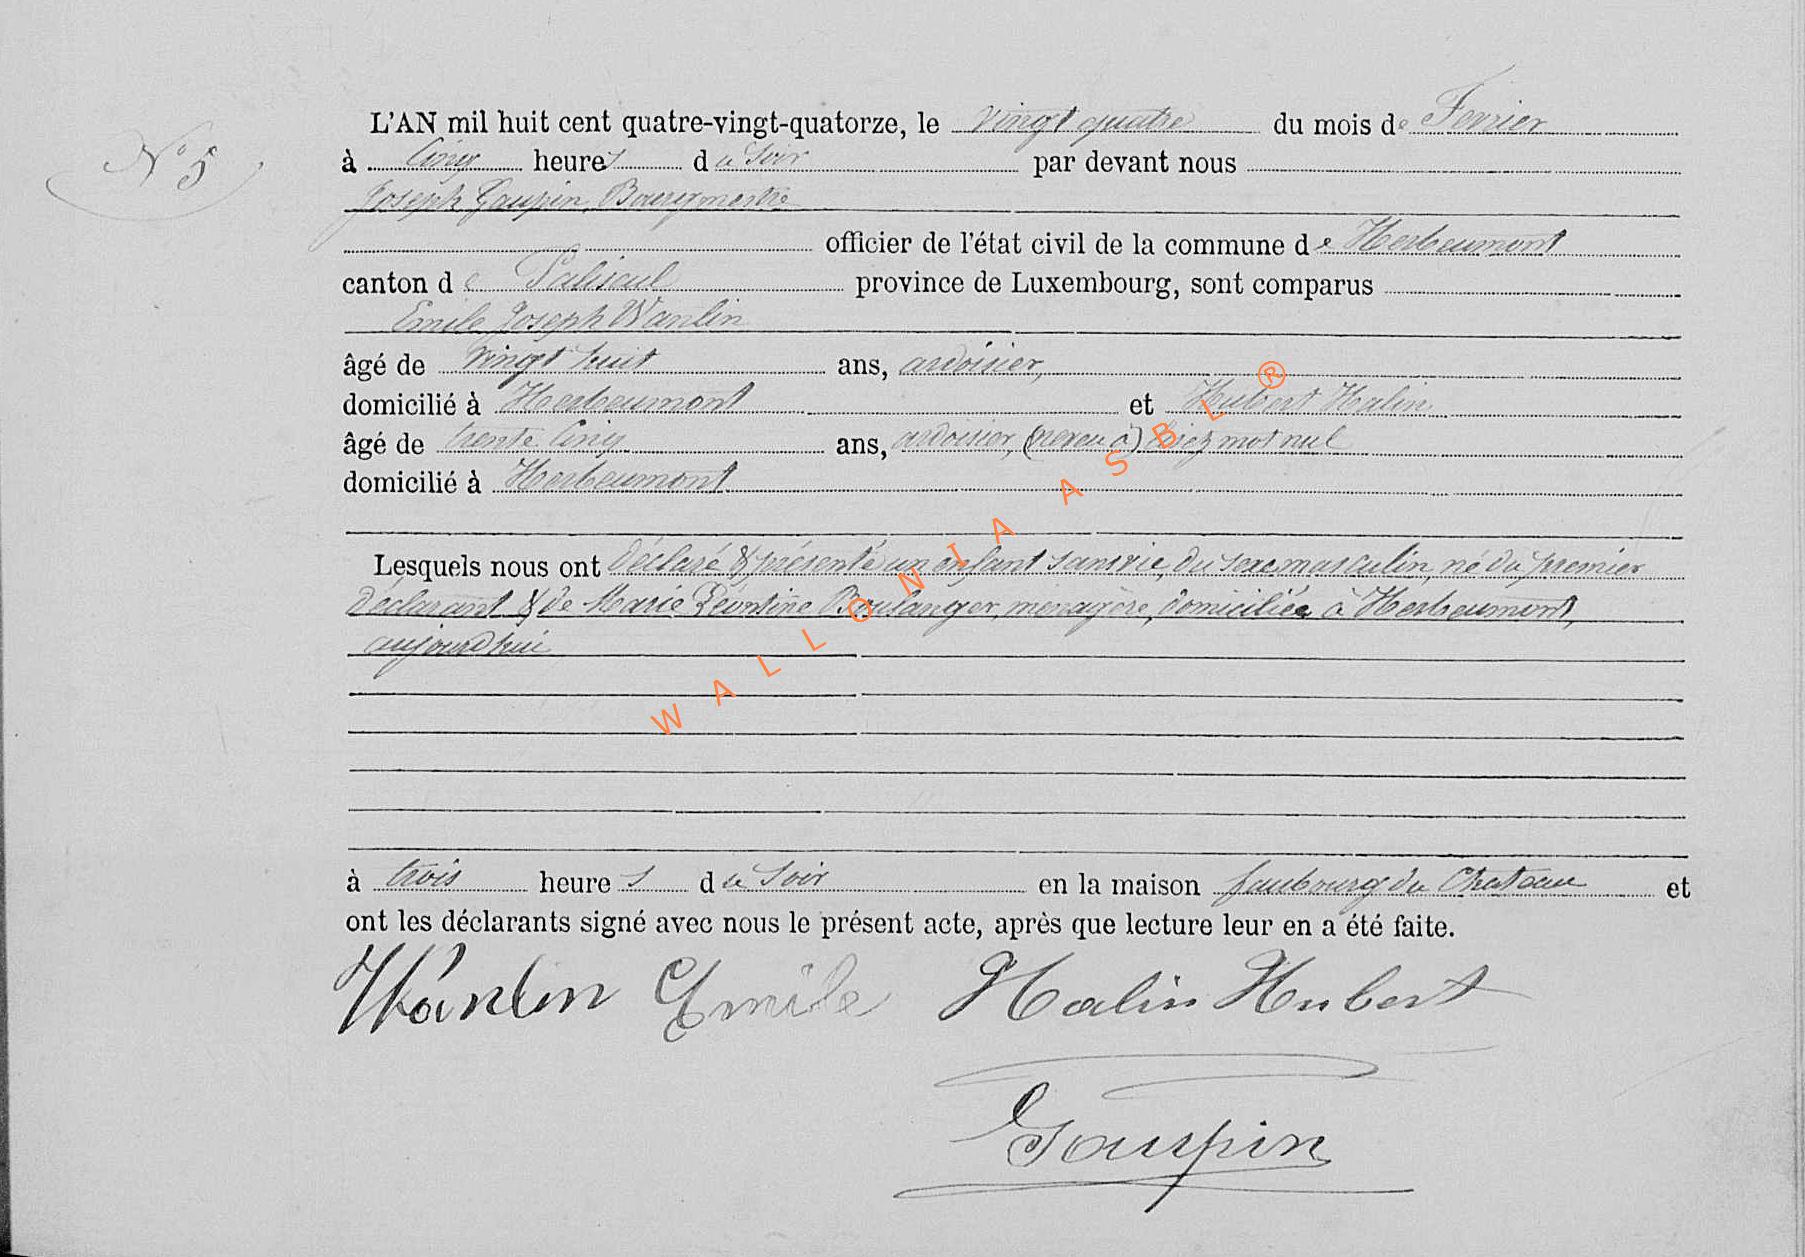 N° 5
L'AN mil huit cent quatre-vingt-quatorze, le vingt quatre du mois de Fevrier
à Cinq heures du Soir par devant nous
Joseph Gaupin, Bourgmestre
officier de l'état civil de la commune de Herbeumont
canton de Paliseul province de Luxembourg, sont comparus
Emile Joseph Wanlin
âgé de vingt huit ans, ardoisier,
domicilié à Herbeumont et Hubert Halin
âgé de trente Cinq ans, ardoisier, (neveu a) raiez mot nul
domicilié à Herbeumont
Lesquels nous ont déclaré & présenté un enfant sans vie, du sexe masculin, né du premier
déclarant & de Marie Léontine Boulanger, ménagère, domiciliée à Herbeumont,
aujourd'hui
à trois heures du Soir en la maison faubourg du Chateau et
ont les déclarants signé avec nous le présent acte, après que lecture leur en a été faite.
Wanlin Emile Halin Hubert
Gaupin
WALLONIA ASBL ®